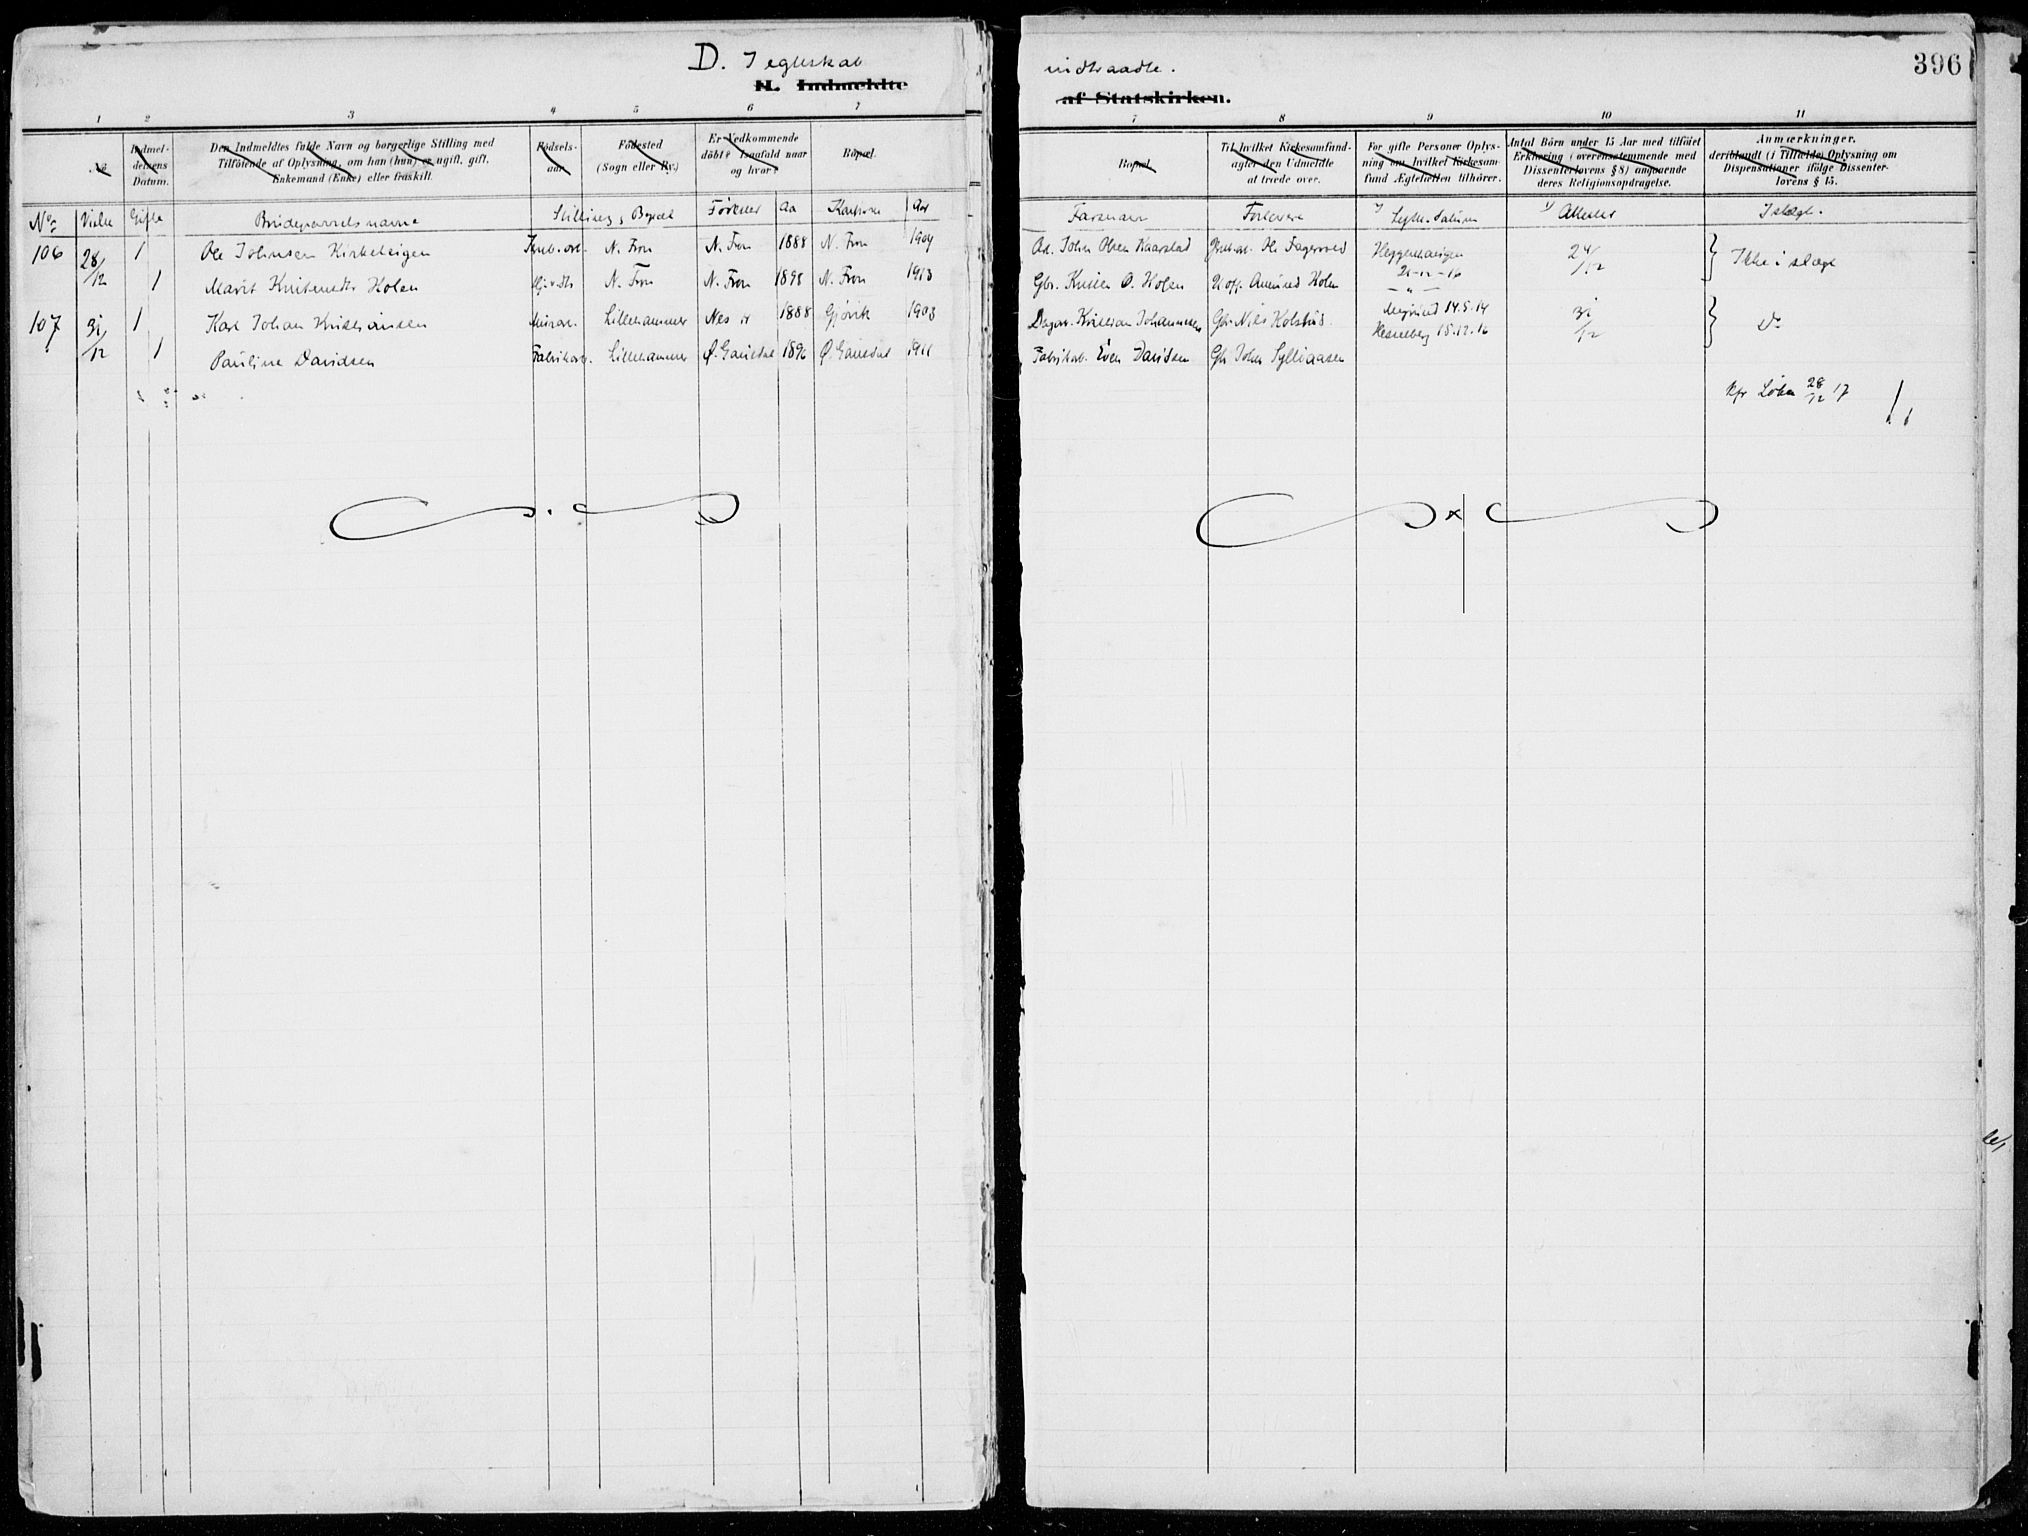 D. I egteskab
H. Indmeldte
1 2 3 4 5 6 7
No
Indmel-
delsens
Datum.
Den Indmeldtes fulde Navn og borgerlige Stilling med
Tilföiende af Oplysning, om han (hun) er ugift, gift,
Enkemand (Enke) eller fraskilt.
Födsels-
aar.
Födested
(Sogn eller By.)
Er Vedkommende
döbt? Isaafald naar
og hvor?
Bopæl.
No Vielse Gifte Brudeparrets navne Stilling, Bopæl Fødested Aar Konfirm. Aar
106 28/12 1 Ole Johnsen Kirkeleigen N. Fron N. Fron 1888 N. Fron 1904
1 Marit Knutsendtr Holen N. Fron N. Fron 1898 N. Fron 1913
107 31/12 1 Karl Johan Kristiansen Lillehammer Nes 1888 Gjøvik 1903
1 Pauline Davidsen Fabrikarb. Lillehammer Ø. Gausdal 1896 Ø. Gausdal 1911
indtraadte.
af Statskirken.
396
7 8 9 10 11
Bopæl.
Til hvilket Kirkesamfund-
agter den Udmeldte
at træde over.
For gifte Personer Oplys-
ning om, hvilket Kirkesam-
fund Ægtefællen tilhörer.
Antal Börn under 15 Aar med tilföiet
Erklæring (overensstemmende med
Dissenterlovens § 8) angaaende
deres Religionsopdragelse.
Anmærkninger,
deriblandt (i Tilfælde) Oplysning om
Dispensationer ifölge Dissenter-
lovens § 15.
Farsnavn Forlovere Lysn. datum Attester I slægt.
John Olsen Kaarstad Ole Fagervold 24/12 Ikke i slægt
Gbr. Knut O. Holen Amund Holen 21-12-16
Dagarb. Kristian Johannessen Gbr. Nils Kolstad 14.5.14 31/12 Do
15.12.16
Fabrikarb. Even Davidsen Gbr John Sylliaasen
Kfr Løken 28/12 17